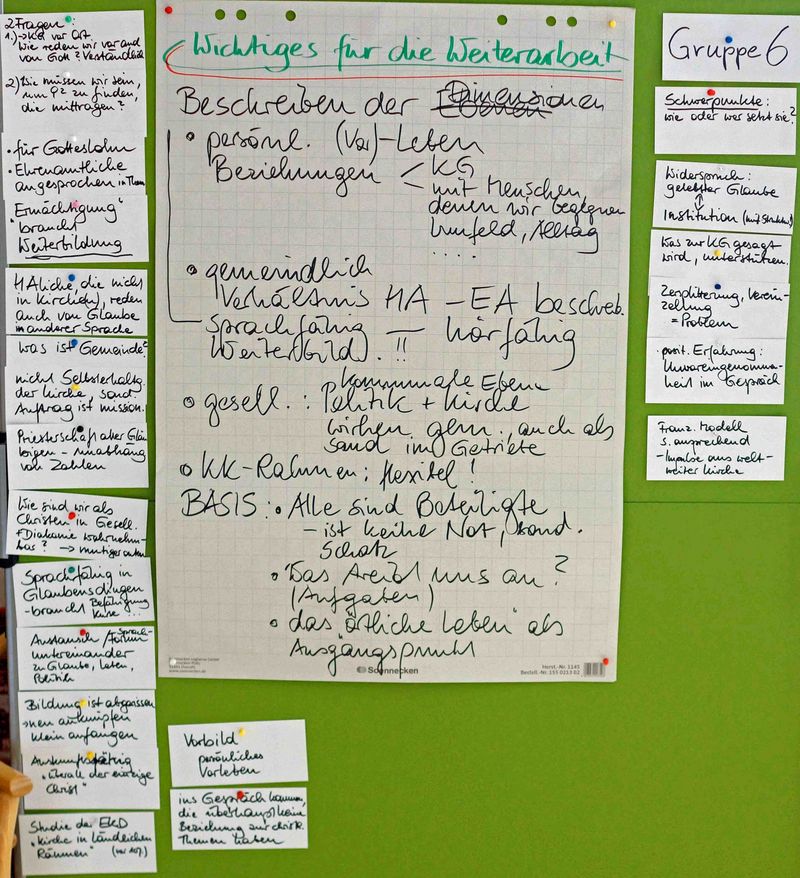 2 Fragen:
1.) → KG vor Ort
Wie reden wir vor and
von Gott? Verständlich
2) Wie müssen wir sein,
um P2 zu finden,
die mittragen?
• für Gotteslohn
• Ehrenamtliche
angesprochen in Them
"Ermächtigung"
braucht
Weiterbildung
HAliche, die nicht
in Kirche(n), reden
auch von Glaube
in anderer Sprache
Was ist Gemeinde?
nicht Selbsterhaltg.
der Kirche, sond
Auftrag ist mission.
Priesterschaft aller Gläu
bigen - unabhäng
von Zahlen
Wie sind wir als
Christen in Gesell.
+ Diakonie wahrnehm-
bar? →
Sprachfähig in
Glaubensdingen
- braucht Befähigung
Kurse ...
Austausch /
Sprach-
untereinander
zu Glaube, Leben,
Politik
Bildung ist abgerissen
→ neu anknüpfen
klein anfangen
Auskunftsfähig
"überall der einzige
Christ"
Studie der EKD
"Kirche in ländlichen
Räumen"
Wichtiges für die Weiterarbeit
Beschreiben der Dimensionen
• persönl. (Vor)-Leben
Beziehungen < KG
- mit Menschen,
denen wir begegnen
Umfeld, Alltag
. . . . .
• gemeindlich
Verhältnis HA – EA beschreib.
Sprachfähig — hörfähig
Weiterbild). !!
• gesell. : kommunale Ebene
Politik + Kirche
wirken gem., auch als
Sand im Getriebe
• KK-Rahmen: flexibel!
BASIS: • Alle sind Beteiligte
- ist keine Not, sond.
Schatz
• Was treibt uns an?
(Aufgaben)
• das "örtliche Leben" als
Ausgangspunkt
Soennecken
Herst.-Nr. 1145
Bestell.-Nr. 155 0213 02
Vorbild
persönliches
Vorleben
ins Gespräch kommen,
die überhaupt kein
Beziehung zur christl.
Themen haben
Gruppe 6
Schwerpunkte:
wie oder wer setzt sie?
Widerspruch:
gelebter Glaube
↕
Institution
Was zur KG gesagt
wird, unterstützen.
Zersplitterung, Verein-
zellung
= Problem
posit. Erfahrung:
Unvoreingenommen-
heit im Gespräch
Franz. Modell
s. ansprechend
- Impulse aus welt-
weiter Kirche